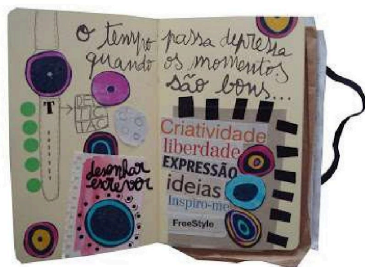 o tempo passa depressa
quando os momentos
são bons...
T
desenhar
escrever
Criatividade
liberdade
EXPRESSÃO
ideias
Inspiro-me
FreeStyle